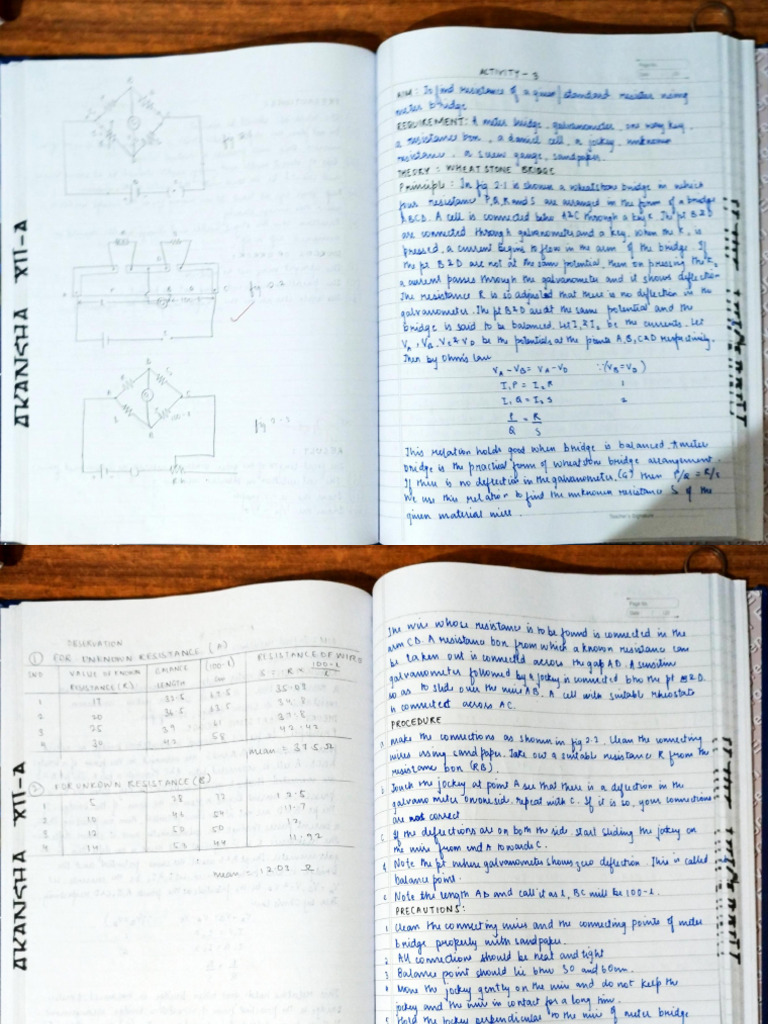 AKANSHA XII-A
fig 2.1
fig 2.2
fig 2.3
ACTIVITY - 3
AIM : To find resistance of a given/standard resistor using
meter bridge
REQUIREMENT: A meter bridge, galvanometer, one way key,
a resistance box, a daniel cell, a jockey, unknown
resistance, a screw gauge, sandpaper.
THEORY : WHEAT STONE BRIDGE
Principle : In fig 2.1 is shown a wheatstone bridge in which
four resistance P,Q,R and S are arranged in the form of a bridge
ABCD. A cell is connected btw A2C through a key K. The pt B2D
are connected through galvanometer and a key. When the K, is
pressed, a current begins to flow in the arm of the bridge. If
the pt B2D are not at the same potential, then on pressing the K2
a current passes through the galvanometer and it shows deflection
The resistance R is so adjusted that there is no deflection in the
galvanometer. The pt B2D are at the same potential and the
bridge is said to be balanced. Let I, I2 be the currents. Let
VA, VB, VC 2 VD be the potentials at the points A,B,C2D respectively.
Then by Ohm's law
VA - VB = VA - VD ∵(VB = VD)
I1P = I2R 1
I1Q = I2S 2
P/Q = R/S
This relation holds good when bridge is balanced. A meter
bridge is the practical form of wheatstone bridge arrangement.
If there is no deflection in the galvanometer, (G) then P/Q = R/S
We use this relation to find the unknown resistance S of the
given material wire.
Teacher's Signature
AKANSHA XII-A
OBSERVATION
① FOR UNKNOWN RESISTANCE (A)
S.NO VALUE OF KNOWN RESISTANCE (R) BALANCE LENGTH (100-l) cm RESISTANCE OF WIRE S = R × 100-l/l
1 19 32.5 67.5 35.09
2 20 36.5 63.5 34.8
3 25 39 61 37.8
4 30 42 58 42.42
mean = 37.5 Ω
② FOR UNKOWN RESISTANCE (B)
1 5 28 72 12.5
2 10 46 54 11.7
3 12 50 50 12
4 14 53 44 11.92
mean = 12.03 Ω
Page No.
The wire whose resistance is to be found is connected in the
arm CD. A resistance box from which a known resistance can
be taken out is connected across the gap AD. A sensitive
galvanometer followed by a jockey is connected btw the pt B2D
so as to slide over the wire AB. A cell with suitable rheostats
is connected across AC.
PROCEDURE
a. Make the connections as shown in fig 2.2. Clean the connecting
wires using sand paper. Take out a suitable resistance R from the
resistance box (RB).
b. Touch the jockey at point A see that there is a deflection in the
galvanometer on one side. repeat with C. If it is so, your connections
are not correct
c. If the deflections are on both the side, start sliding the jockey on
the wire from end A towards C.
d. Note the pt where galvanometer shows zero deflection. This is called
balance point.
e. Note the length AD and call it as l, BC will be 100-l.
PRECAUTIONS:
1 Clean the connecting wires and the connecting points of meter
bridge properly with sandpaper.
2 All connections should be neat and tight
3 Balance point should lie btw 30 and 60cm.
4 Move the jockey gently on the wire and do not keep the
jockey and the wire in contact for a long time.
5 Hold the jockey perpendicular to the wire of meter bridge